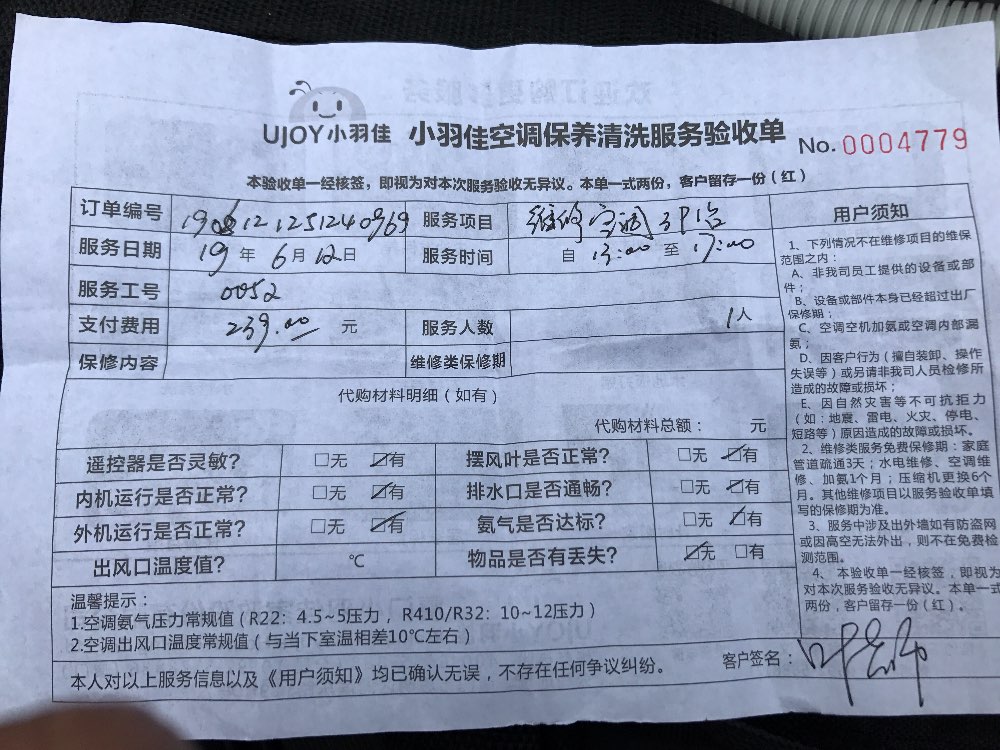 UJOY小羽佳 小羽佳空调保养清洗服务验收单 No. 0004779
本验收单一经核签，即视为对本次服务验收无异议。本单一式两份，客户留存一份（红）
订单编号 服务项目 维修空调
服务日期 19年6月12日 服务时间 自 13:00 至 17:00
服务工号 0052
支付费用 239.00 元 服务人数 1人
保修内容 维修类保修期
代购材料明细（如有）
代购材料总额： 元
遥控器是否灵敏? □无 ☑有 摆风叶是否正常? □无 ☑有
内机运行是否正常? □无 ☑有 排水口是否通畅? □无 ☑有
外机运行是否正常? □无 ☑有 氨气是否达标? □无 ☑有
出风口温度值? ℃ 物品是否有丢失? ☑无 □有
温馨提示：
1.空调氨气压力常规值（R22：4.5~5压力，R410/R32：10~12压力）
2.空调出风口温度常规值（与当下室温相差10℃左右）
本人对以上服务信息以及《用户须知》均已确认无误，不存在任何争议纠纷。
用户须知
1、下列情况不在维修项目的维保
范围之内：
A、非我司员工提供的设备或部
件；
B、设备或部件本身已经超过出厂
保修期；
C、空调空机加氨或空调内部漏
氨；
D、因客户行为（擅自装卸、操作
失误等）或另请非我司人员检修所
造成的故障或损坏；
E、因自然灾害等不可抗拒力
（如：地震、雷电、火灾、停电、
短路等）原因造成的故障或损坏。
2、维修类服务免费保修期：家庭
管道疏通3天；水电维修、空调维
修、加氨1个月；压缩机更换6个
月。其他维修项目以服务验收单填
写的保修期为准。
3、服务中涉及出外墙如有防盗网
或因高空无法外出，则不在免费检
测范围。
4、本验收单一经核签，即视为
对本次服务验收无异议。本单一式
两份，客户留存一份（红）。
客户签名：